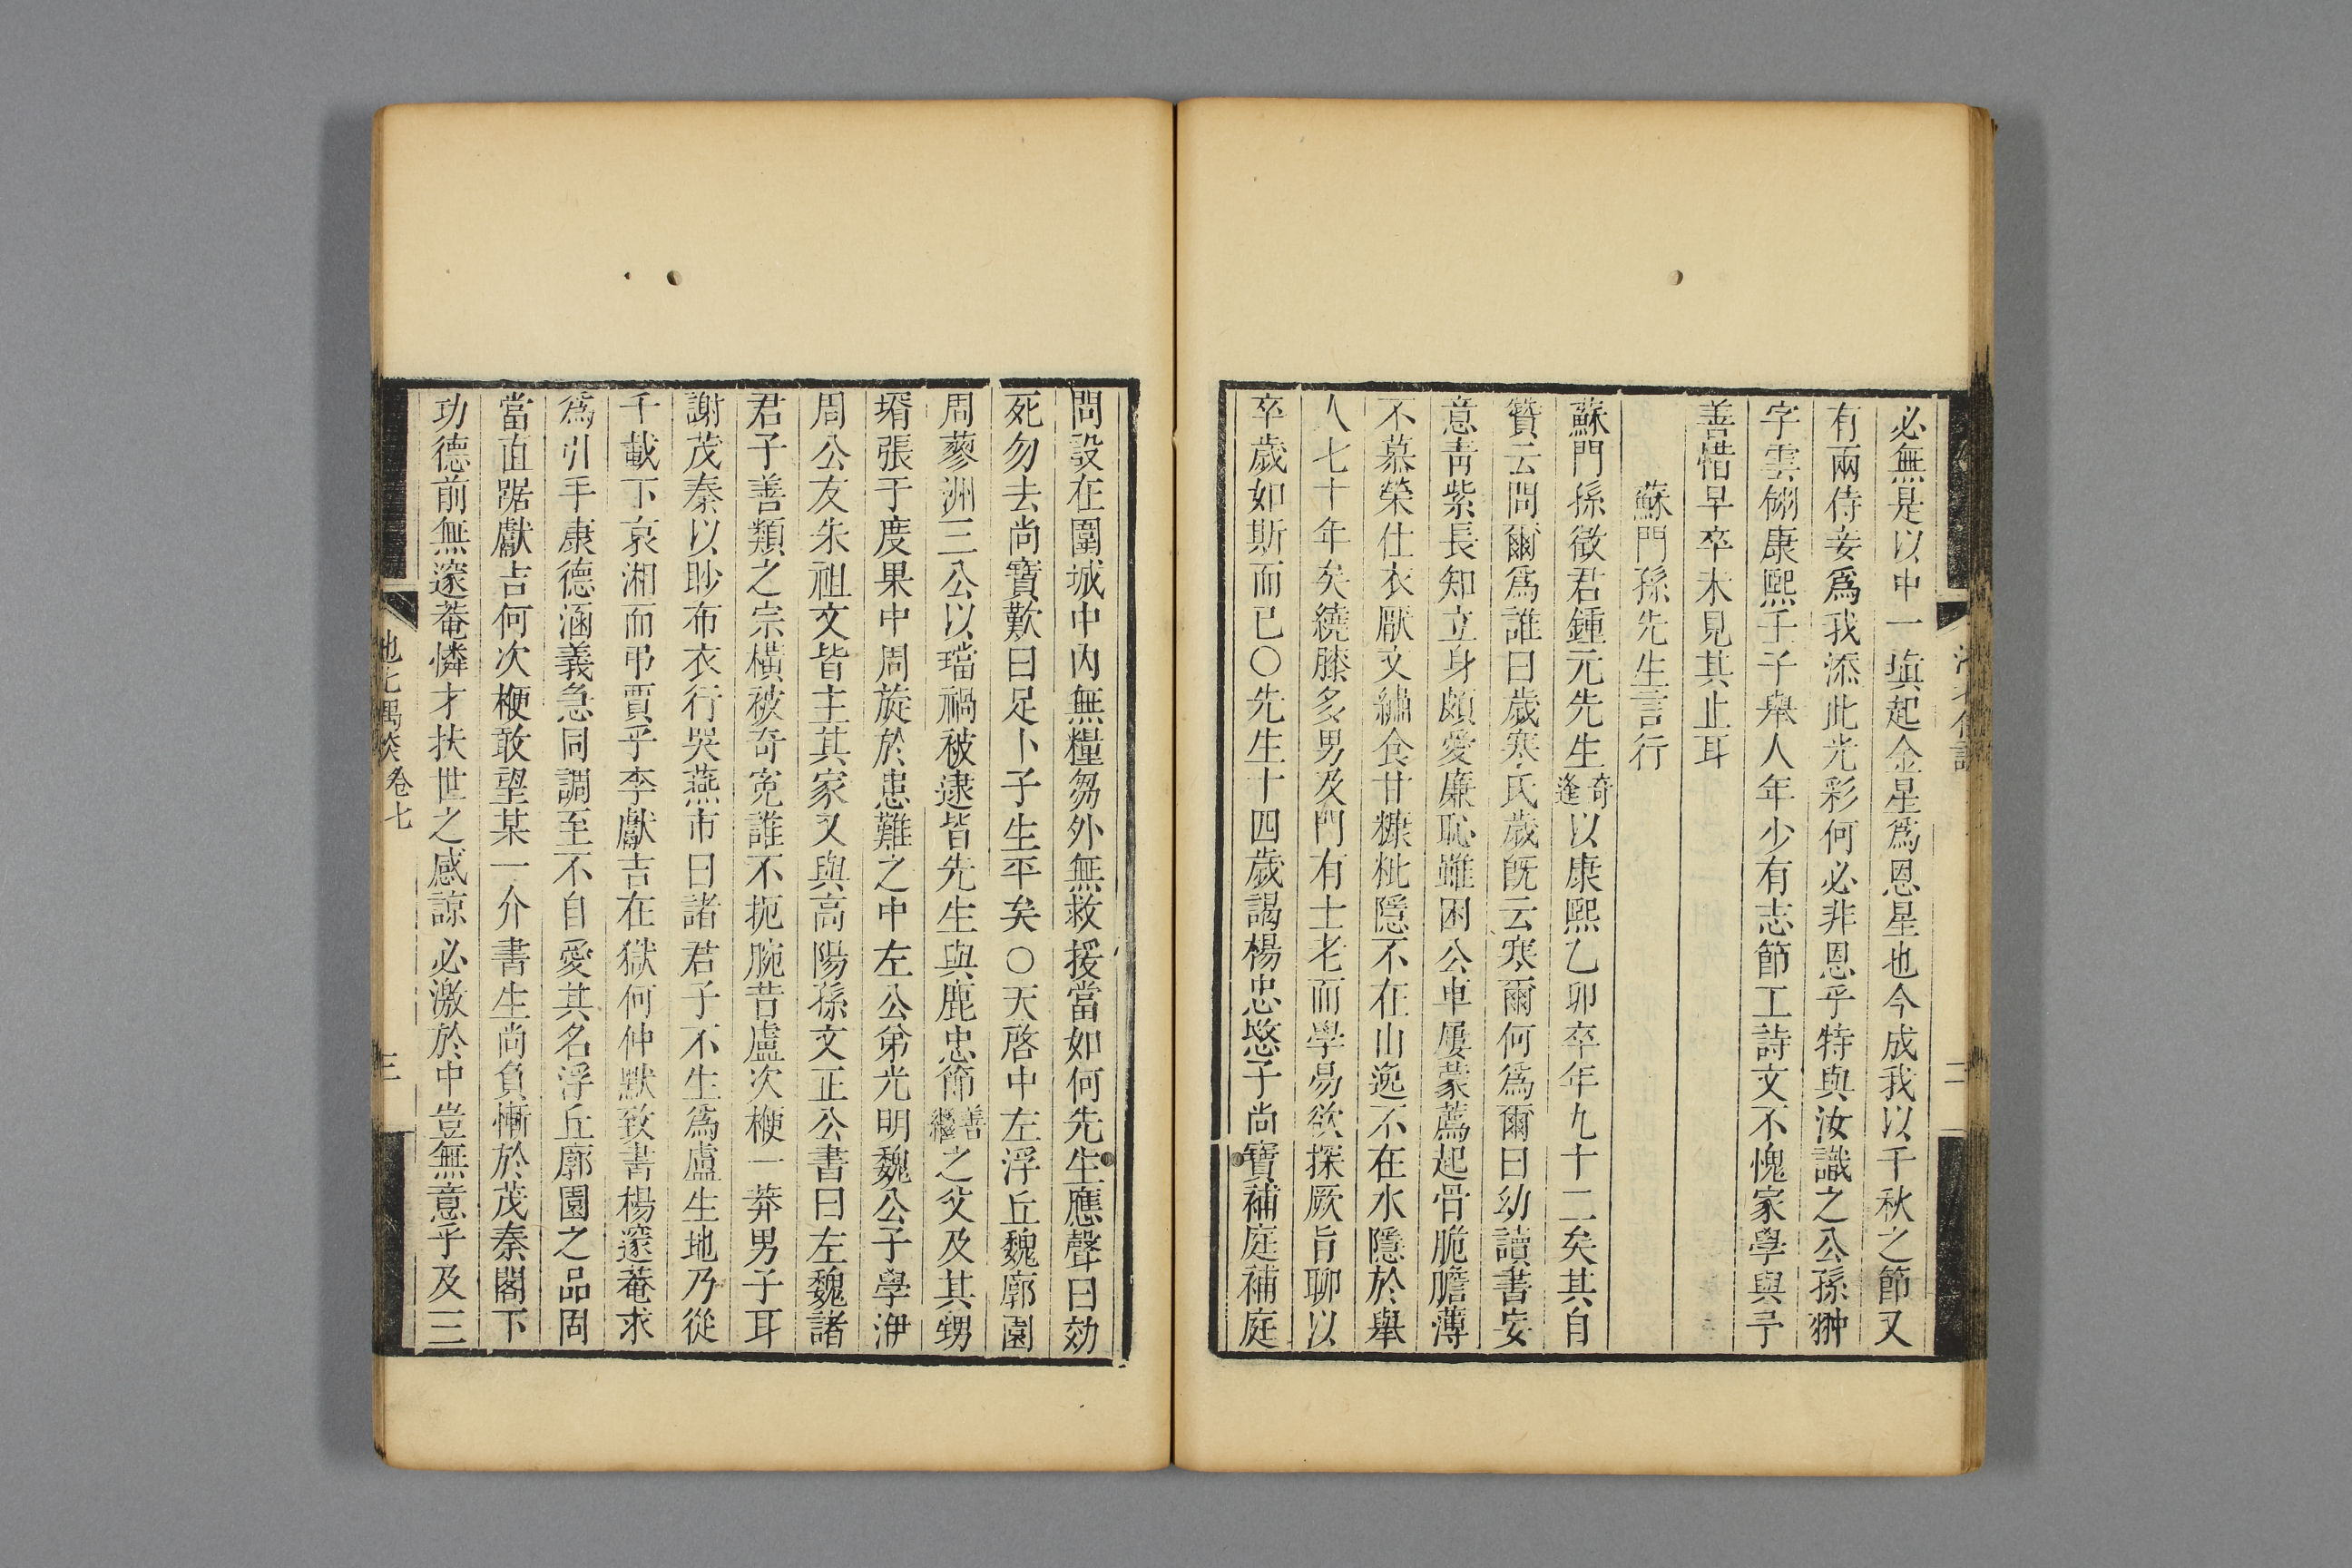 必無是以中一塡起金星爲恩星也今成我以千秋之節又
有兩侍妾爲我添此光彩何必非恩乎特與汝識之公孫翀
字雲翎康熙壬子舉人年少有志節工詩文不愧家學與予
善惜早卒未見其止耳
蘇門孫先生言行
蘇門孫徵君鍾元先生奇逢以康熙乙卯卒年九十二矣其自
贊云問爾爲誰曰歲寒氏歲旣云寒爾何爲爾曰幼讀書妄
意靑紫長知立身頗愛廉恥雖困公車屢蒙薦起骨脆膽薄
不慕榮仕衣厭文繡食甘糠粃隱不在山逸不在水隱於舉
人七十年矣繞膝多男及門有士老而學易欲探厥旨聊以
卒歲如斯而已〇先生十四歲謁楊忠愍子尚寶補庭補庭
問設在圍城中內無糧芻外無救援當如何先生應聲曰効
死勿去尚寶歎曰足卜子生平矣〇天啓中左浮丘魏廓園
周蓼洲三公以璫禍被逮皆先生與鹿忠節善繼之父及其甥
壻張于度果中周旋於患難之中左公弟光明魏公子學洢
周公友朱祖文皆主其家又與高陽孫文正公書曰左魏諸
君子善類之宗橫被奇寃誰不扼腕昔盧次楩一莽男子耳
謝茂秦以眇布衣行哭燕市曰諸君子不生爲盧生地乃從
千載下哀湘而弔賈乎李獻吉在獄何仲默致書楊邃菴求
爲引手康德涵義急同調至不自愛其名浮丘廓園之品固
當直踞獻吉何次楩敢望某一介書生尚負慚於茂秦閣下
功德前無邃菴憐才扶世之感諒必激於中豈無意乎及三
卷七
三